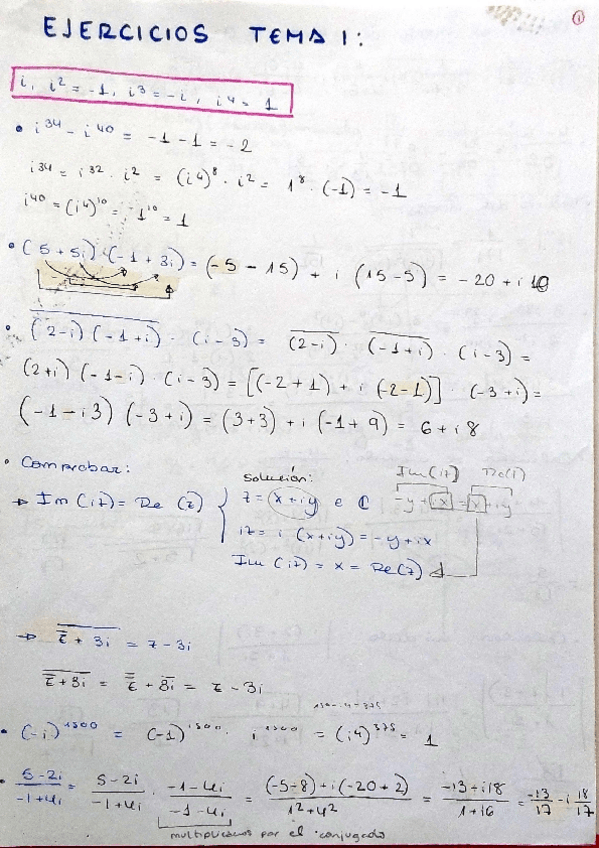 EJERCICIOS TEMA 1:
i, i² = -1, i³ = -i, i⁴ = 1
• i³⁴ - i⁴⁰ = -1 - 1 = -2
i³⁴ = i³² · i² = (i⁴)⁸ · i² = 1⁸ · (-1) = -1
i⁴⁰ = (i⁴)¹⁰ = 1¹⁰ = 1
• (5 + 5i) · (-1 + 3i) = (-5 - 15) + i (15 - 5) = -20 + i 10
• \overline{(2-i) (-1+i)} · (i-3) = \overline{(2-i)} · \overline{(-1+i)} · (i-3) =
(2+i) (-1-i) · (i-3) = [(-2+1) + i (-2-1)] · (-3+i) =
(-1-i3) (-3+i) = (3+3) + i (-1+9) = 6 + i8
• Comprobar:
solución:
Im(iz) Re(z)
→ Im (iz) = Re (z) { z = x+iy ∈ ℂ -y + ix = x + iy
iz = i (x+iy) = -y+ix
Im (iz) = x = Re(z)
→ \overline{\overline{z} + 3i} = z - 3i
\overline{\overline{z} + 3i} = \overline{\overline{z}} + \overline{3i} = z - 3i
• (-i)¹⁵⁰⁰ = (-1)¹⁵⁰⁰ · i¹⁵⁰⁰ = (i⁴)³⁷⁵ = 1
• \frac{5-2i}{-1+4i} = \frac{5-2i}{-1+4i} · \frac{-1-4i}{-1-4i} = \frac{(-5-8)+i(-20+2)}{1²+4²} = \frac{-13+i18}{1+16} = \frac{-13}{17} - i \frac{18}{17}
multiplicamos por el conjugado